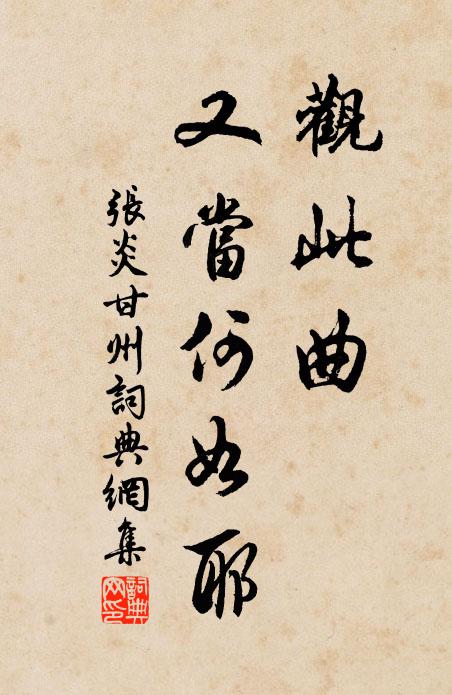 觀此曲
又當何如耶
張炎甘州詞典網集
詞典網印